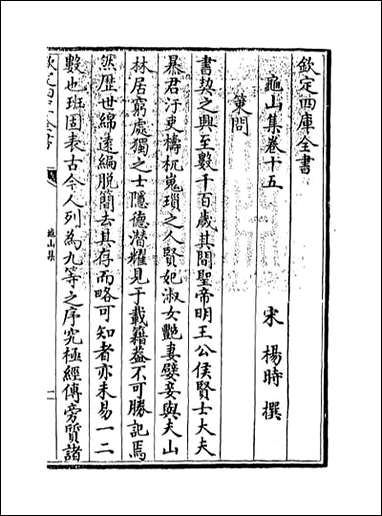 欽定四庫全書
龜山集卷十五
宋 楊時 撰
策問
書契之興至數千百歲其間聖帝明王公侯賢士大夫
暴君汙吏檮杌嵬瑣之人賢妃淑女艷妻嬖妾與夫山
林居窮處獨之士隱德潛耀見于載籍葢不可勝記焉
然歴世綿逺編脱簡去其存而略可知者亦未易一二
數也班固表古今人列為九等之序究極經傳旁質諸
龜山集